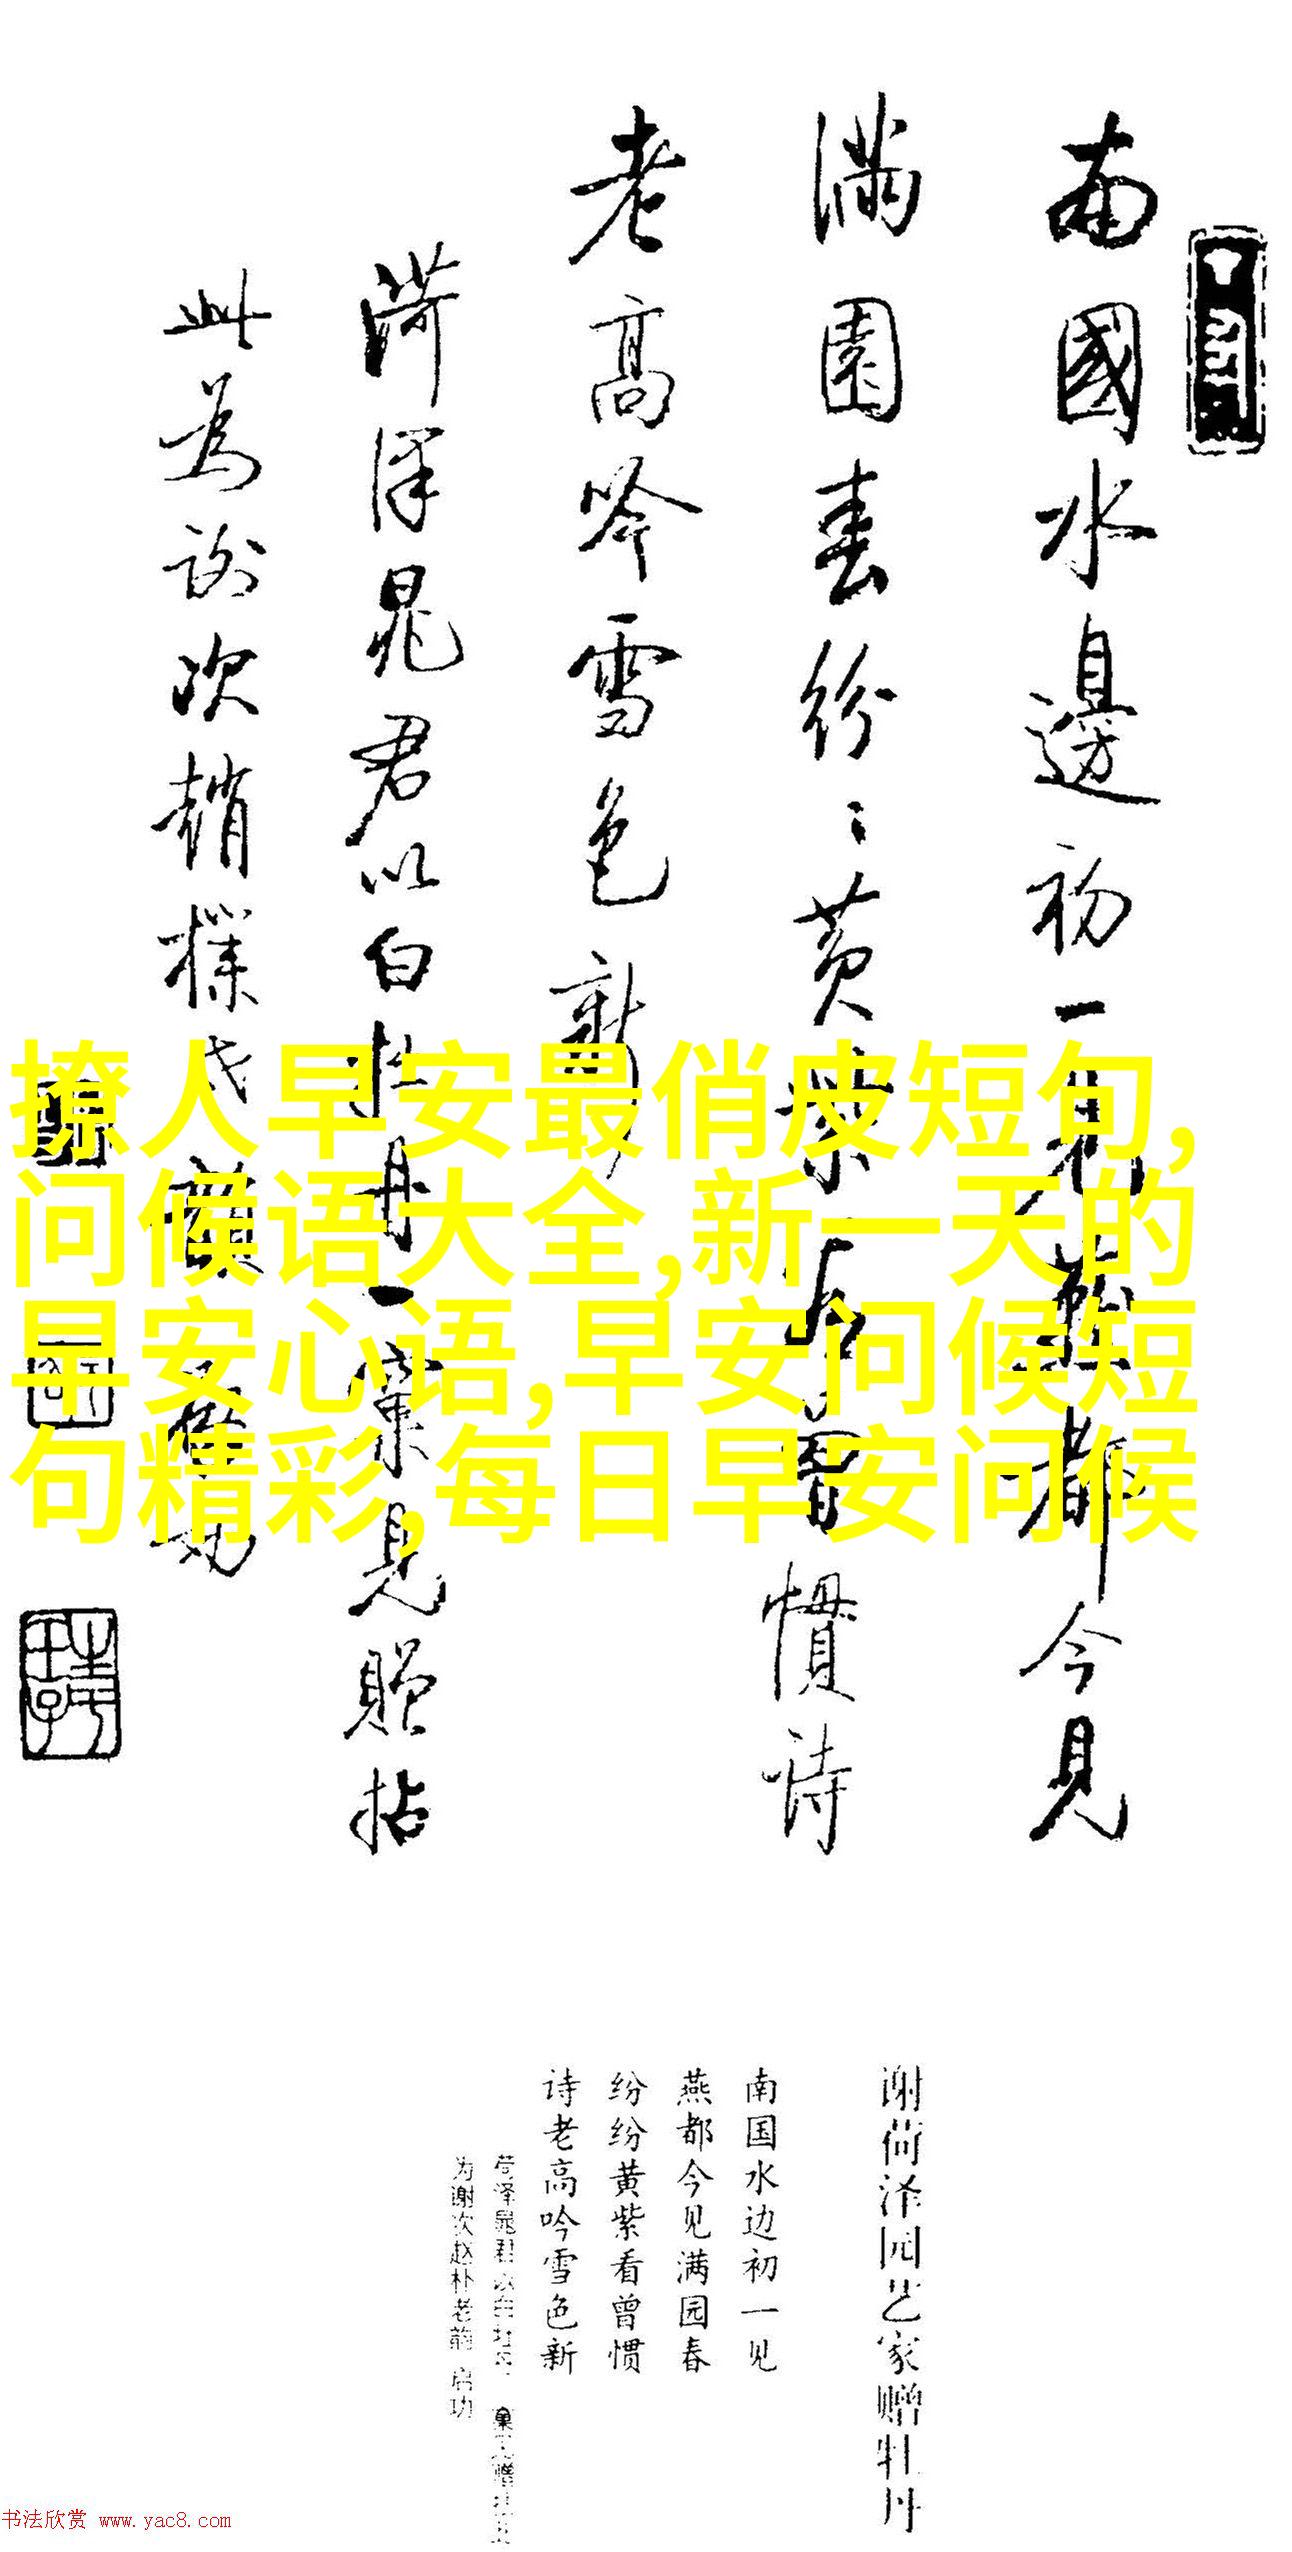 南國水邊初一見燕都今見
滿園春紛〻黄紫看曾慣詩
老高吟雪色新
菏澤晁君以白牡丹一窠見贈拈
此為謝次趙樸老韻 啓功
撩人早安最俏皮短句,
问候语大全,新一天的
早安心语,早安问候短
句精彩,每日早安问候
谢荷泽园艺家赠牡丹
南国水边初一见
燕都今见满园春
纷纷黄紫看曾惯
诗老高吟雪色新
为谢次赵朴老韵 启功
书法欣赏 www.yac8.com